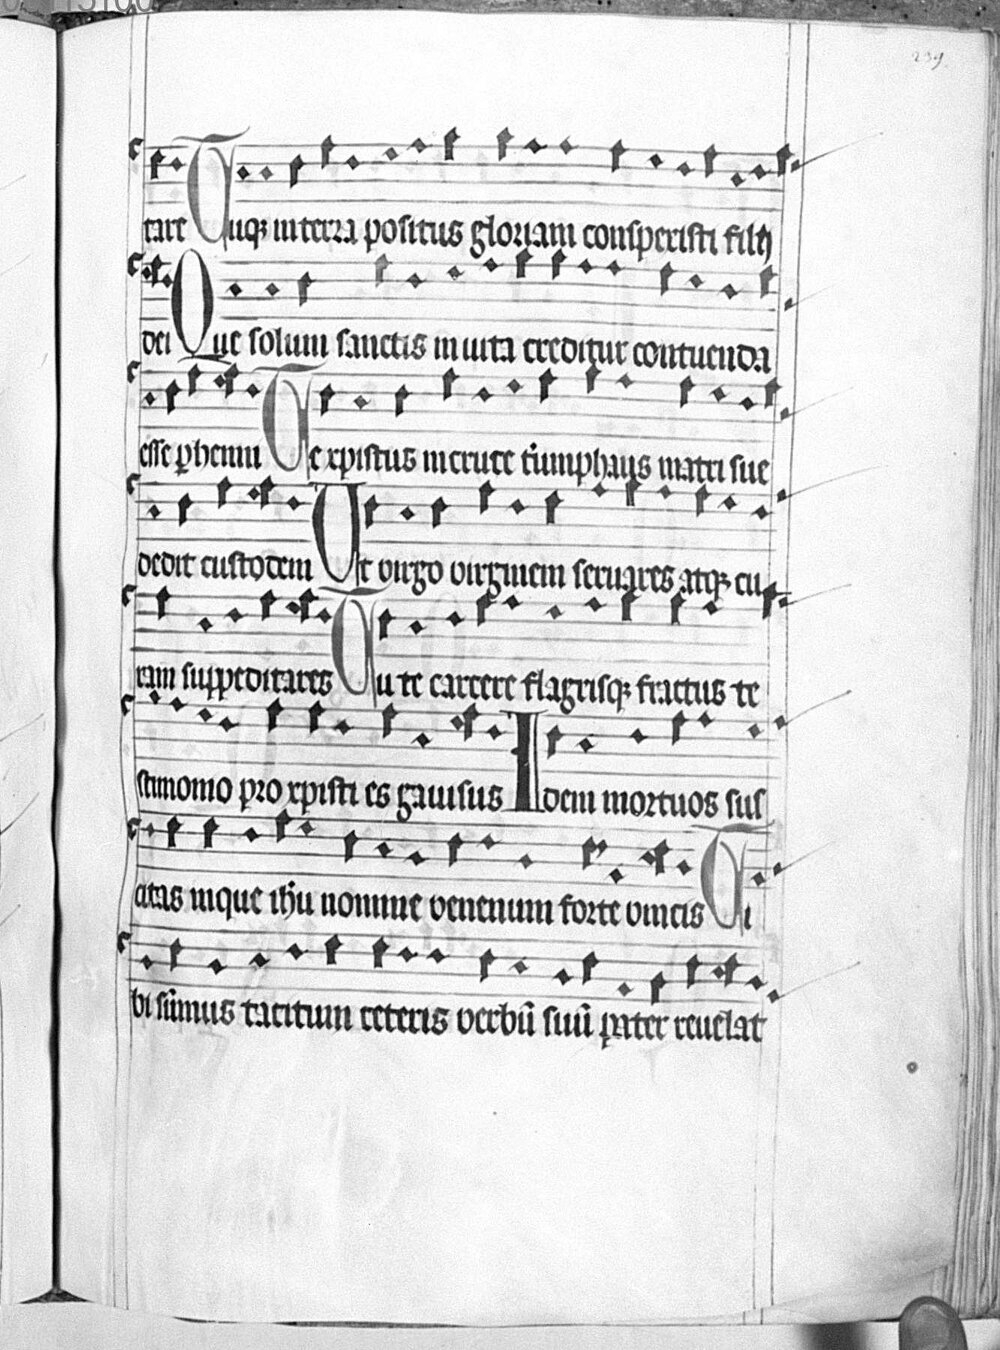 239
tare Tuq; in terra positus gloriam conspexisti filij
dei Que solum sanctis in uita creditur contuenda
esse p̱henni Te xpistus in cruce triumphans matri sue
dedit custodem Ut uirgo uirginem seruares atq; cu
ram suppeditares Tu te carcere flagrisq; fractus te
stimonio pro xpisti es gauisus Idem mortuos sus
citas inque ih̄u nomine uenenum forte uincis Ti
bi sūmus tacitum ceteris uerbū suū pater reuelat